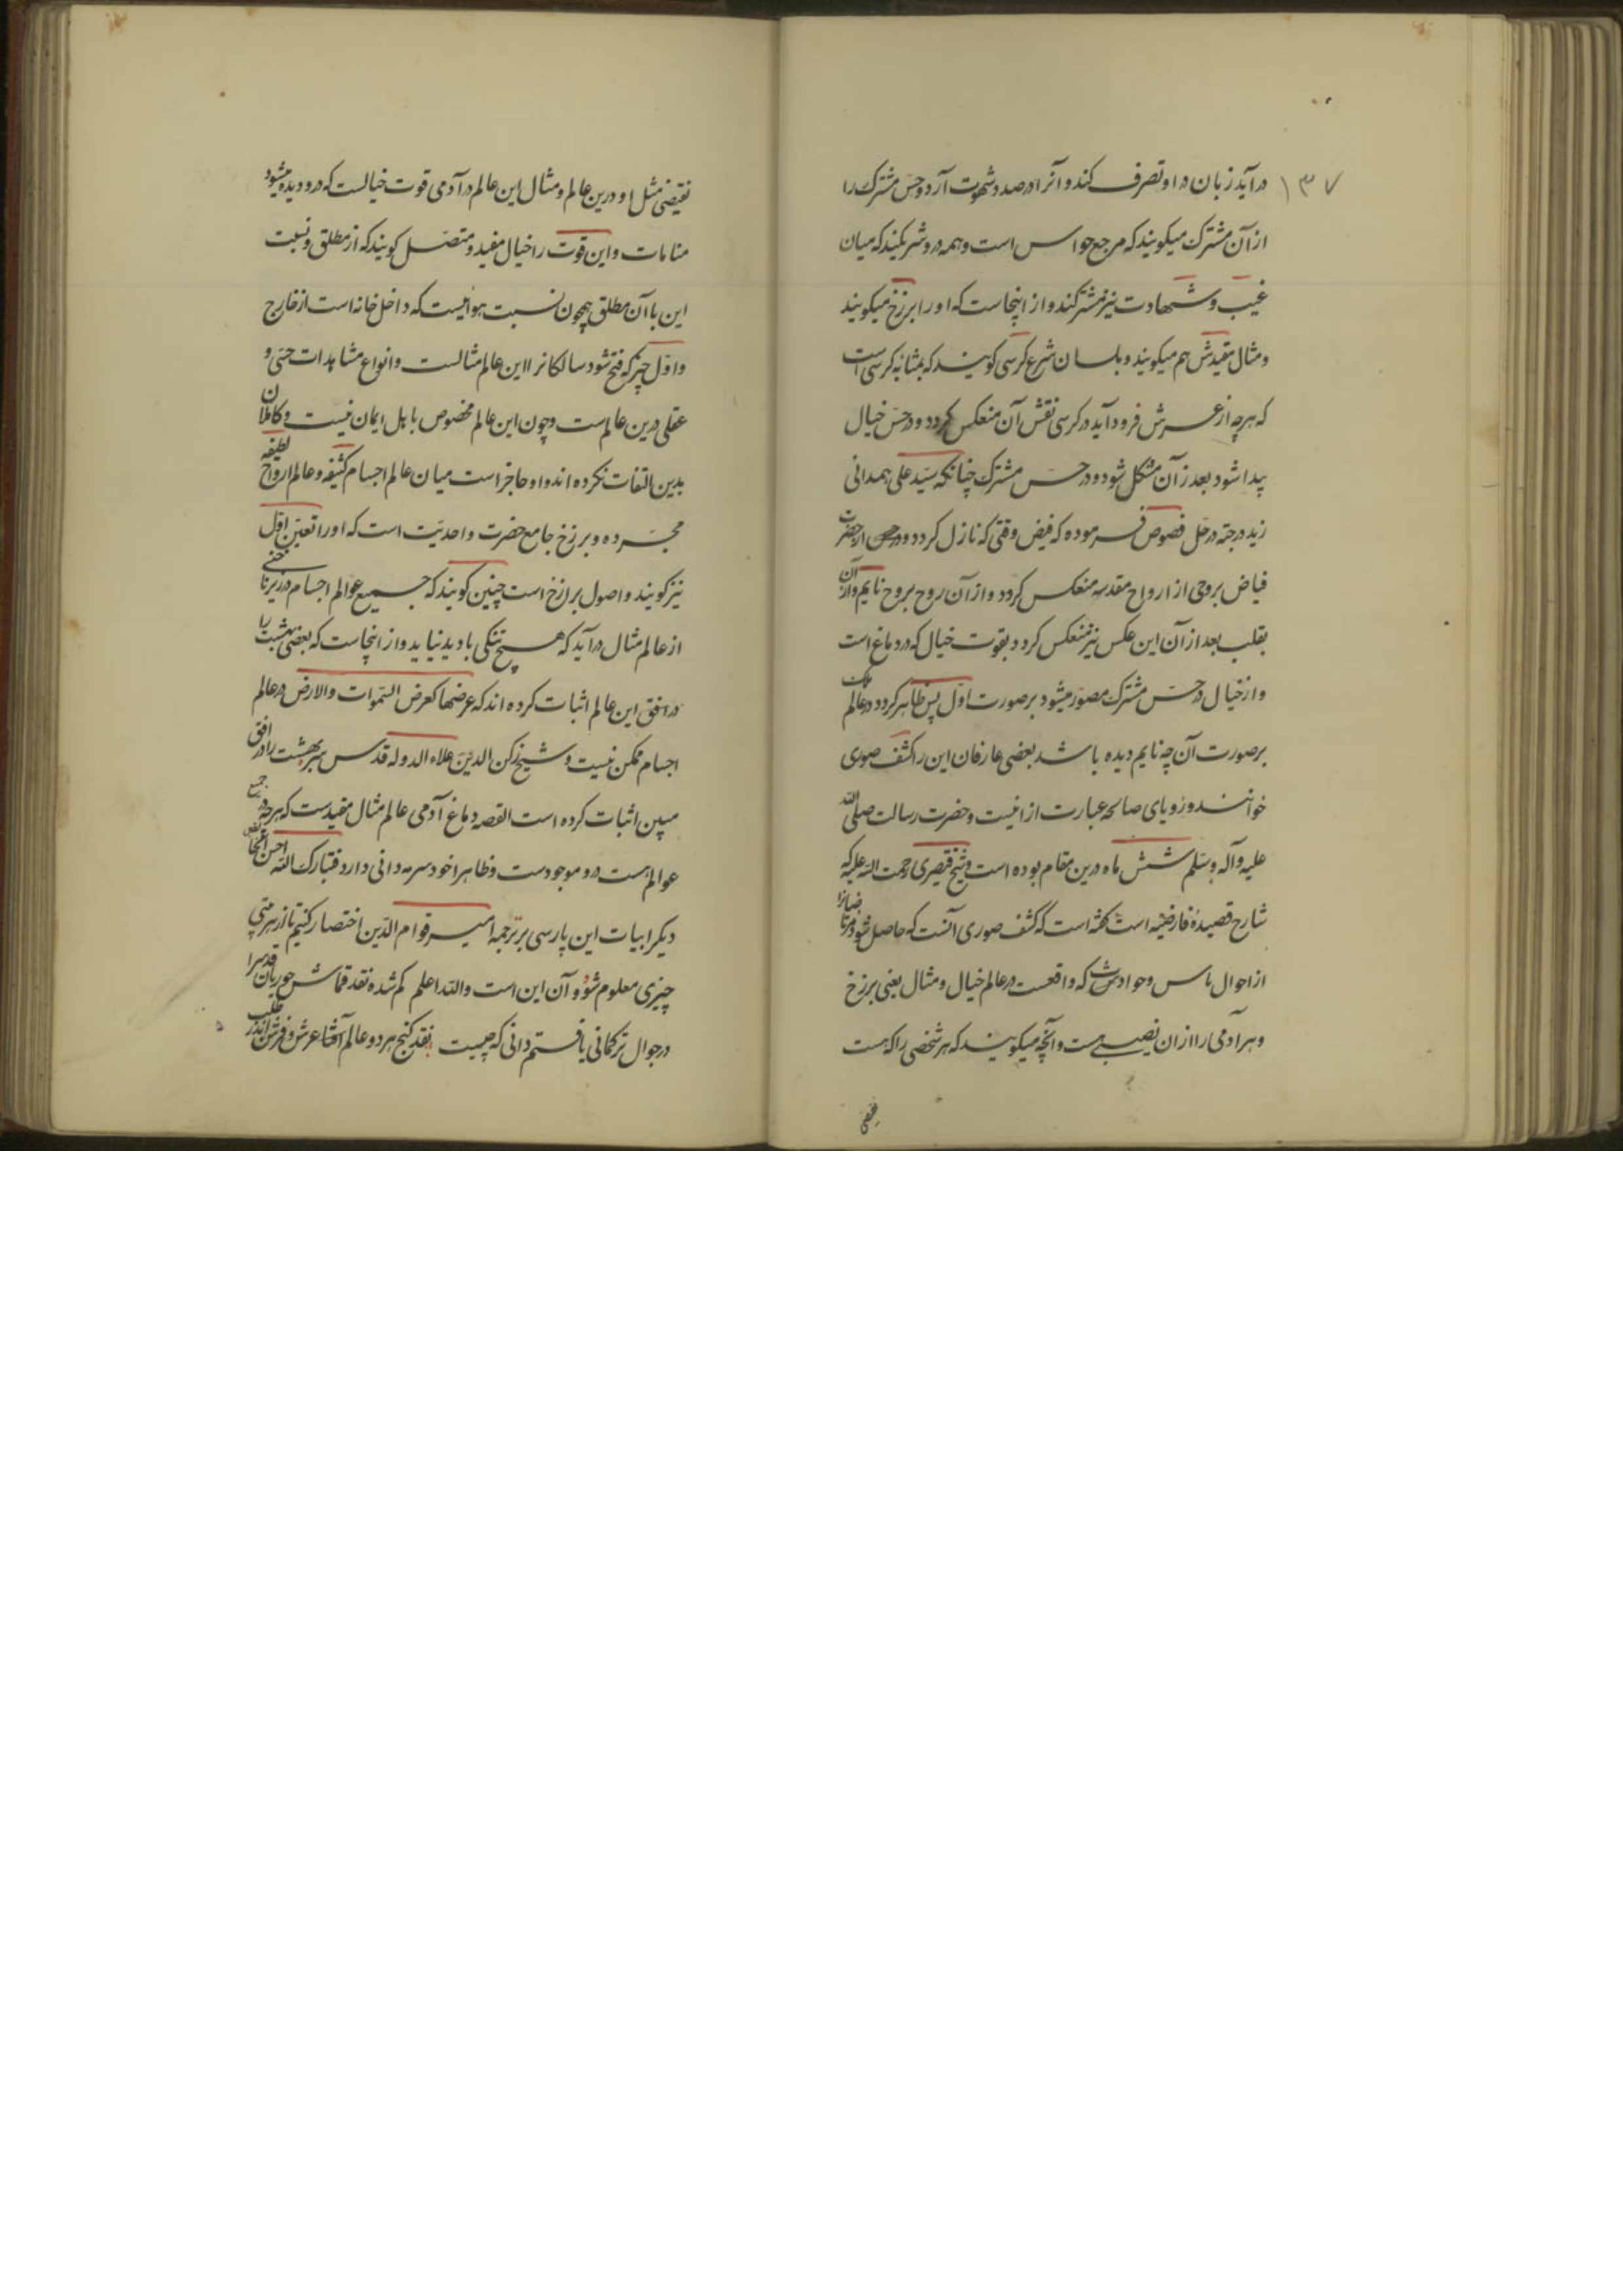 ۱۳۷
در آید زبان در او تصرف کند و آنرا در صدد شهوت آرد و حس مشترک را
از آن مشترک میکویند که مرجع حواس است و همه در و شریکند که میان
غیب و شهادت نیز مشترکند و از اینجاست که او را برزخ میکویند
و مثال مقیدش هم میکویند و بلسان شرع کرسی کویند که بمثابه کرسی است
که هرچه از عرش فرود آید در کرسی نقش آن منعکس کردد و در حس خیال
پیدا شود بعد از آن مشکل شود در حس مشترک چنانکه سید علی همدانی
زید درجته در حل فصوص فرموده که فیض وقتی که نازل کردد از حضرت
فیاض بروحی از ارواح مقدسه منعکس کردد و از آن روح بروح نایم و از آن
بقلب بعد از آن این عکس نیز منعکس کردد بقوت خیال که در دماغ است
و از خیال در حس مشترک مصور میشود بر صورت اول پس ظاهر کردد در عالم ملک
بر صورت آن چه نایم دیده باشد بعضی عارفان این را کشف صوری
خوانند و رویای صالحه عبارت از انیست و حضرت رسالت صلی الله
علیه و آله و سلم شش ماه درین مقام بوده است و شیخ قیصری رحمت الله علیه که
شارح قصیده فارضیه است کفته است که کشف صوری آنست که حاصل شود مرتاضانرا
از احوال ناس و حوادث که واقعست در عالم خیال و مثال یعنی برزخ
و هر آدمی را از ان نصیبی هست و آنچه میکویند که هر شخصی را که هست
نقیضی
نقیضی مثل او درین عالم و مثال این عالم در آدمی قوت خیالست که در و دیده میشود
منامات و این قوت را خیال مقید و متصل کویند که از مطلق و نسبت
این با آن مطلق همچون نسبت هوائیست که داخل خانه است از خارج
و اول چیز که فتح شود سالکانرا این عالم مثالست و انواع مشاهدات حسی و
عقلی درین عالم است و چون این عالم مخصوص باهل ایمان نیست و کاملان
بدین التفات نکرده اند و او حاجز است میان عالم اجسام کثیفه و عالم ارواح لطیفه
مجرده و برزخ جامع حضرت واحدیت است که او را تعین اول
نیز کویند و اصول برازخ است چنین کویند که جمیع عوالم اجسام در زیر
از عالم مثال در آید که هیچ تنکی با دید نیاید و از اینجاست که بعضی بهشت را
در افق این عالم اثبات کرده اند که عرضها کعرض السموات والارض در عالم
اجسام ممکن نیست و شیخ رکن الدین علاء الدوله قدس سره بهشت را در افق
مبین اثبات کرده است القصه دماغ آدمی عالم مثال مقیدست که هرچه در جمیع
عوالم هست در و موجودست و ظاهرا خود سر مه دانی دارد فتبارک الله احسن الخالقین
دیکر ابیات این پارسی بر ترجمه امیر قوام الدین اختصار کنیم تا از هر بیتی
چیزی معلوم شود و آن این است والله اعلم کم شده نقد قماش حوریان قدسرا
در جوال ترکمانی یافتم دانی که چیست نقد کنج هر دو عالم عرش و فرش اندر طلب